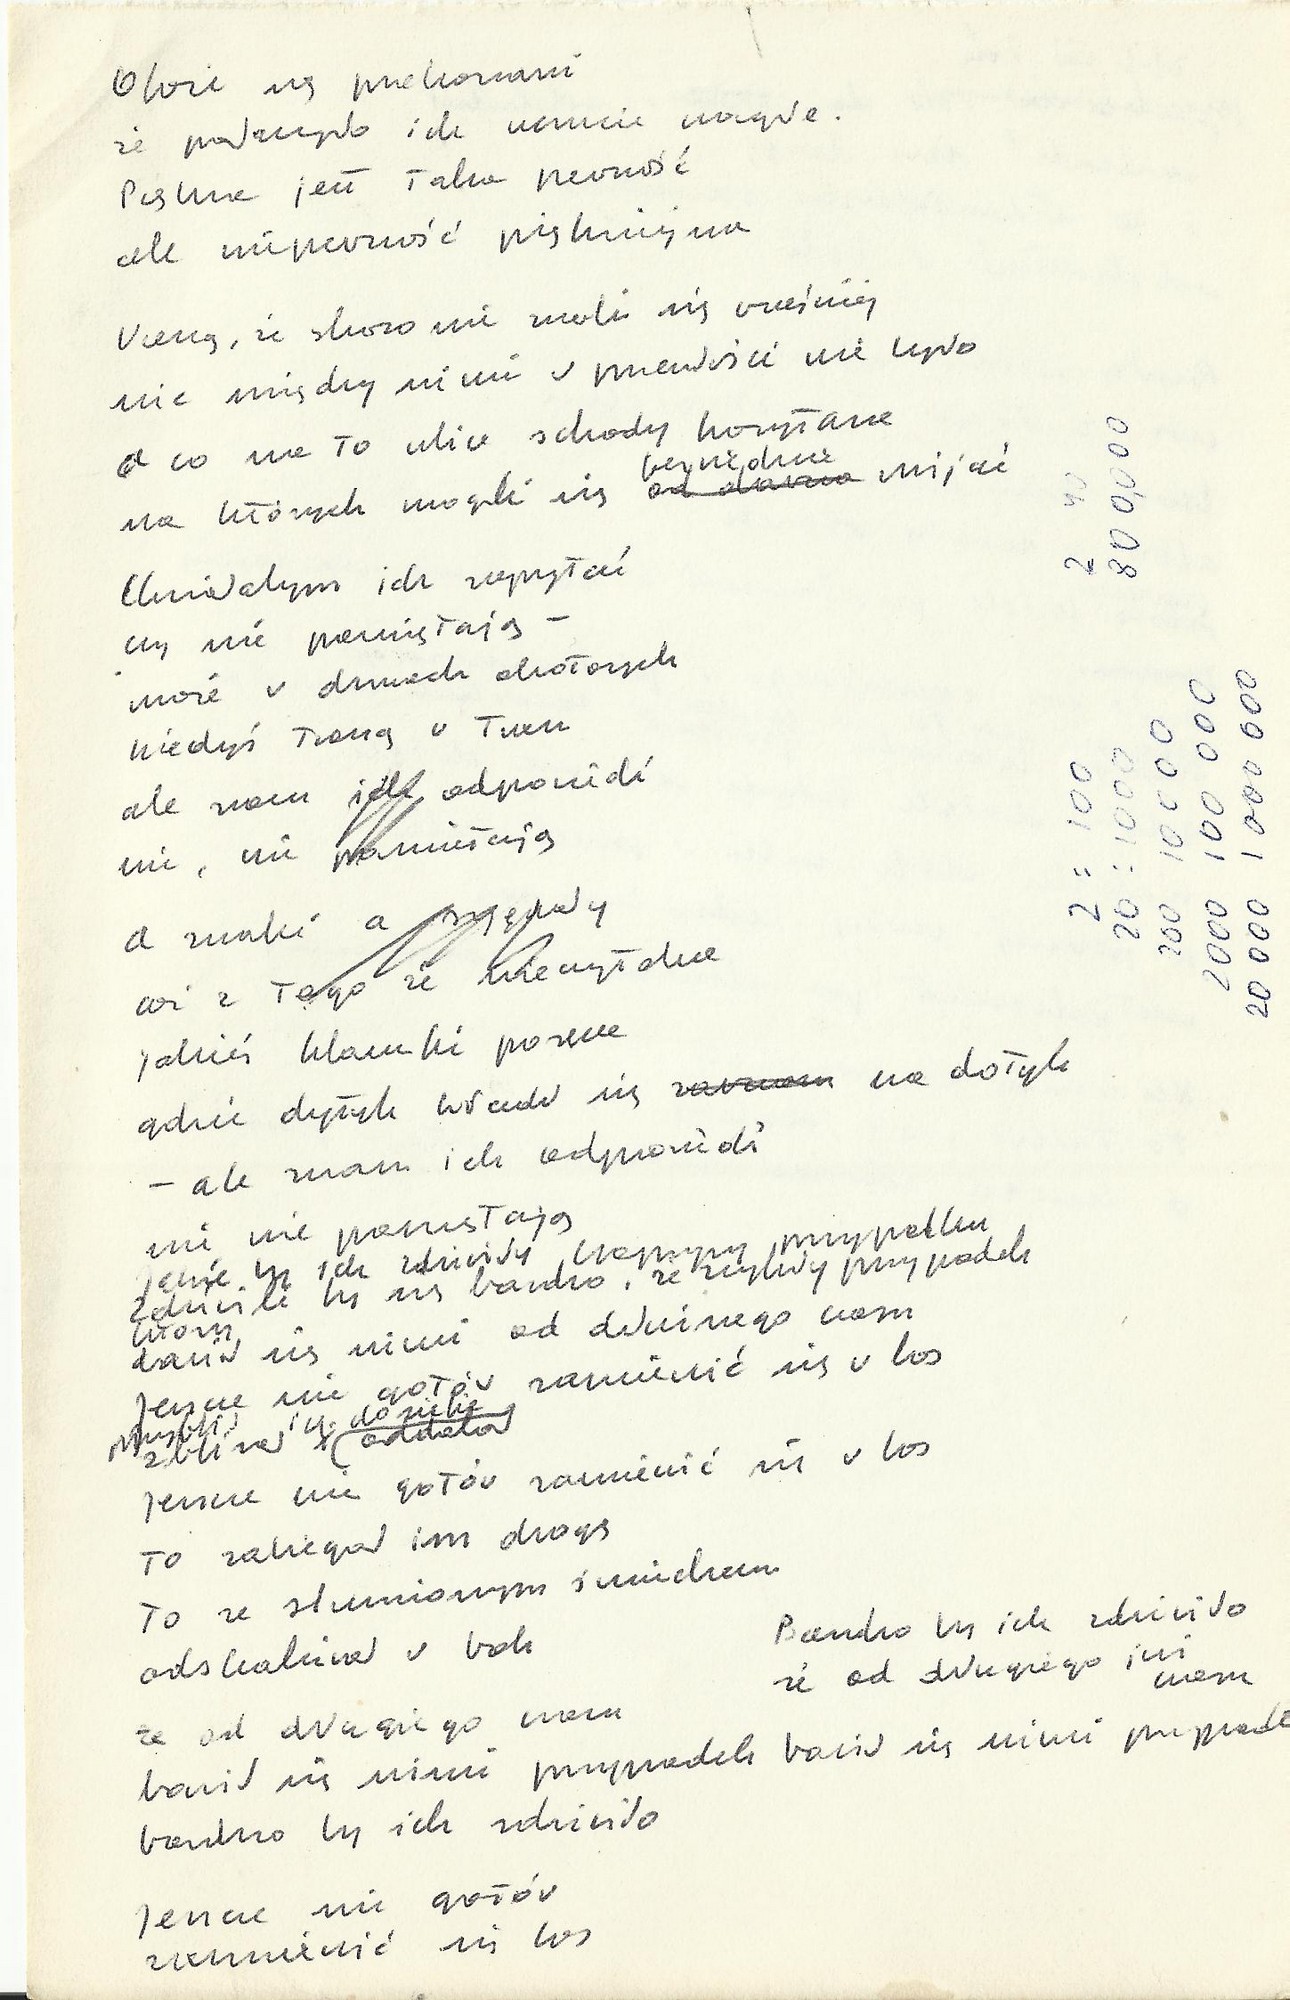 Oboje są przekonani
że połączyło ich uczucie nagłe.
Piękna jest taka pewność
ale niepewność piękniejsza
Uważają, że skoro nie znali się wcześniej
nic między nimi w przeszłości nie było
A co na to ulice schody korytarze
bezwiednie
na których mogli się od dawna mijać
Chciałabym ich zapytać
czy nie pamiętają –
może w drzwiach obrotowych
kiedyś twarzą w twarz
ale znam ich odpowiedź
nie, nie pamiętają
A znaki a sygnały
cóż z tego że nieczytelne
jakieś klamki poręcze
gdzie dotyk kładł się zawczasu na dotyk
– ale znam ich odpowiedź
nie nie pamiętają
by ich zdziwiły przypadku
Zdziwiło by ich bardzo, że przypadek
którzy
bawił się nimi od dłuższego czasu
Jeszcze nie gotów zamienić się w los
zbliżał ich do siebie
oddalał
Jeszcze nie gotów zamienić się w los
to zabiegał im drogę
to ze stłumionym śmiechem
odskakiwał w bok
że od długiego czasu
bawił się nimi przypadek
bardzo by ich zdziwiło
Jeszcze nie gotów
zamienić się w los
Bardzo by ich zdziwiło
że od długiego już
czasu
bawił się nimi przypadek
2 40
800,000
2 : 100
20 : 1000
200 10000
2000 100 000
20 000 1 000 000